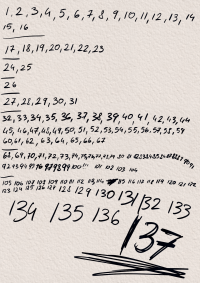 1, 2, 3, 4, 5, 6, 7, 8, 9, 10, 11, 12, 13, 14
15, 16
17, 18, 19, 20, 21, 22, 23
24, 25
26
27, 28, 29, 30, 31
32, 33, 34, 35, 36, 37, 38, 39, 40, 41, 42, 43, 44
45, 46, 47, 48, 49, 50, 51, 52, 53, 54, 55, 56, 57, 58, 59
60, 61, 62, 63, 64, 65, 66, 67
68, 69, 70, 71, 72, 73, 74, 75
92 93 94 95 96 97 98 99 100 101 102 103 104
105 106 107 108 109 110 111 112 113 114 115 116 117 118 119 120 121 122
123 124 125 126 127 128 129 130 131 132 133
134 135 136
137